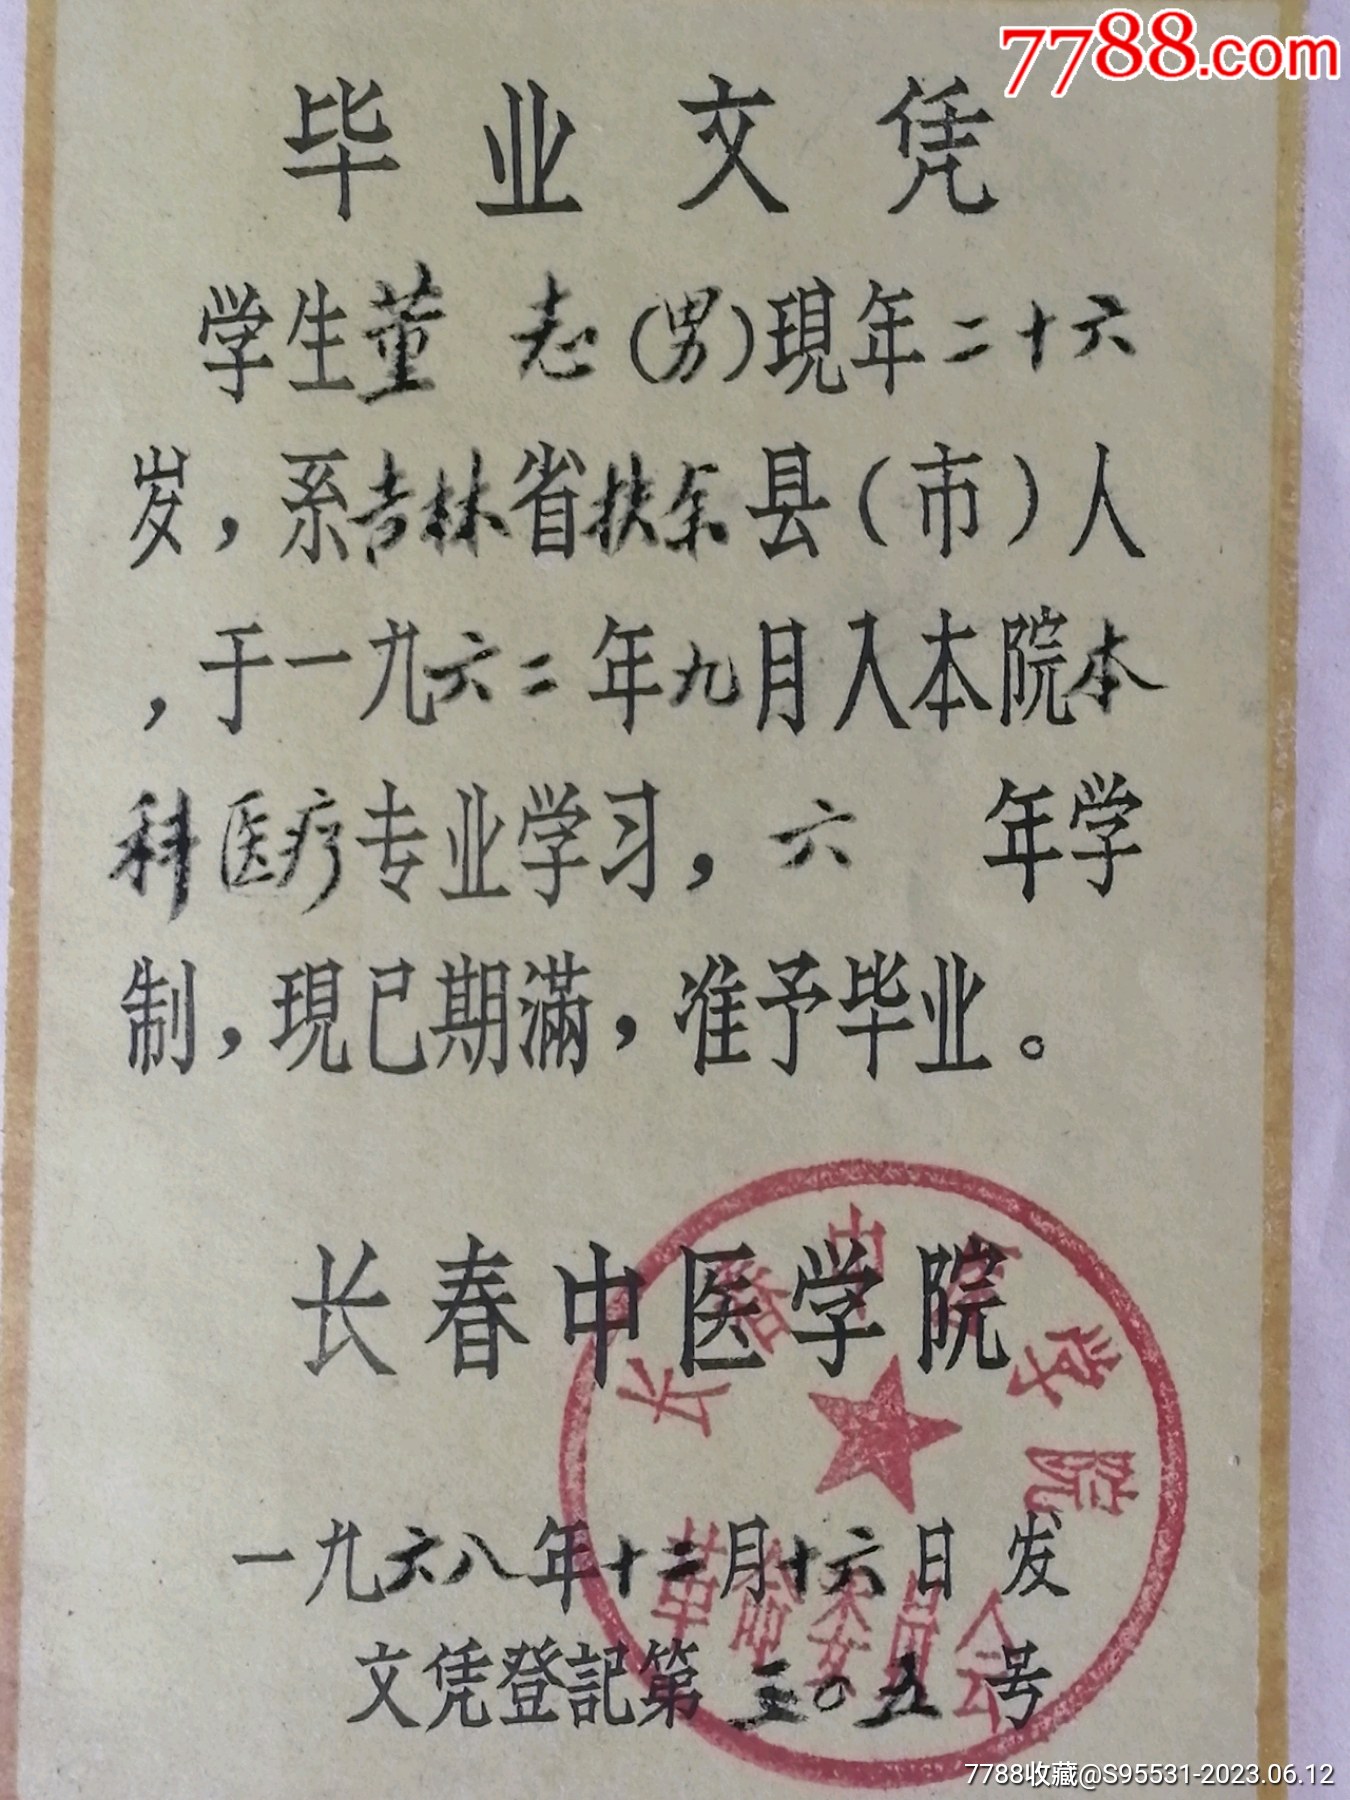 7788.com
毕业文凭
学生董志(男)現年二十六
岁，系吉林省扶余县(市)人
，于一九六二年九月入本院本
科医疗专业学习，六年学
制，現已期滿，准予毕业。
长春中医学院
长春中医学院
革命委员会
一九六八年十二月十六日发
文凭登記第三〇五号
7788收藏@S95531-2023.06.12